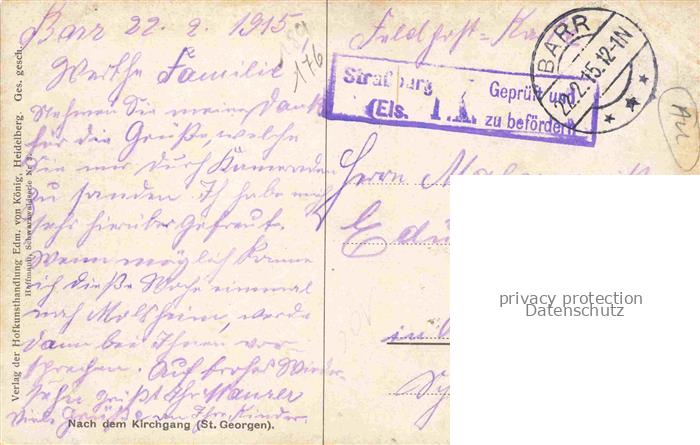 Barr 22. 2. 1915
Werthe Familie
Nehmen Sie meinen Dank
für die Grüße, welche
Sie mir durch Kameraden
zu sanden Ich habe mich
sehr hierüber Gefreut.
Wenn möglich komme
ich dieße Woche einmal
nach Molsheim, werde
dann bei Ihnen vor-
sprechen. Auf frohes Wieder-
sehn grüßt Ihr Maurer
Viele Grüße an Ihre Kinder.
Nach dem Kirchgang (St. Georgen).
Verlag der Hofkunsthandlung Edm. von König, Heidelberg. Ges. gesch.
Hoffmann, Schwarzwaldserie No
189
176
Feldpost-Karte
BARR
22.2.15.12-1N
Straßburg
(Els.
Geprüft und
zu befördern
Herrn
Edu
in
privacy protection
Datenschutz